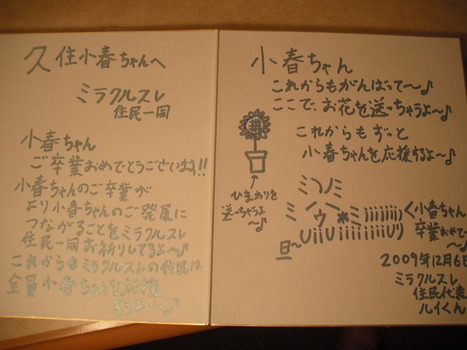 久住小春ちゃんへ
ミラクルスレ
住民一同
小春ちゃん
ご卒業おめでとうございます!!
小春ちゃんのご卒業が
より小春ちゃんのご発展に
つながることをミラクルスレ
住民一同お祈りしてるよ〜♪
これからもミラクルスレの住民は
全員小春ちゃんを応援
するよ〜♪
小春ちゃん
これからもがんばって〜♪
ここで、お花を送っちゃうよ〜♪
これからもずっと
小春ちゃんを応援するよ〜♪
ひまわりを
送っちゃうよ
〜♪
小春ちゃん
卒業おめで〜
2009年12月6日
ミラクルスレ
住民代表
ルイくん